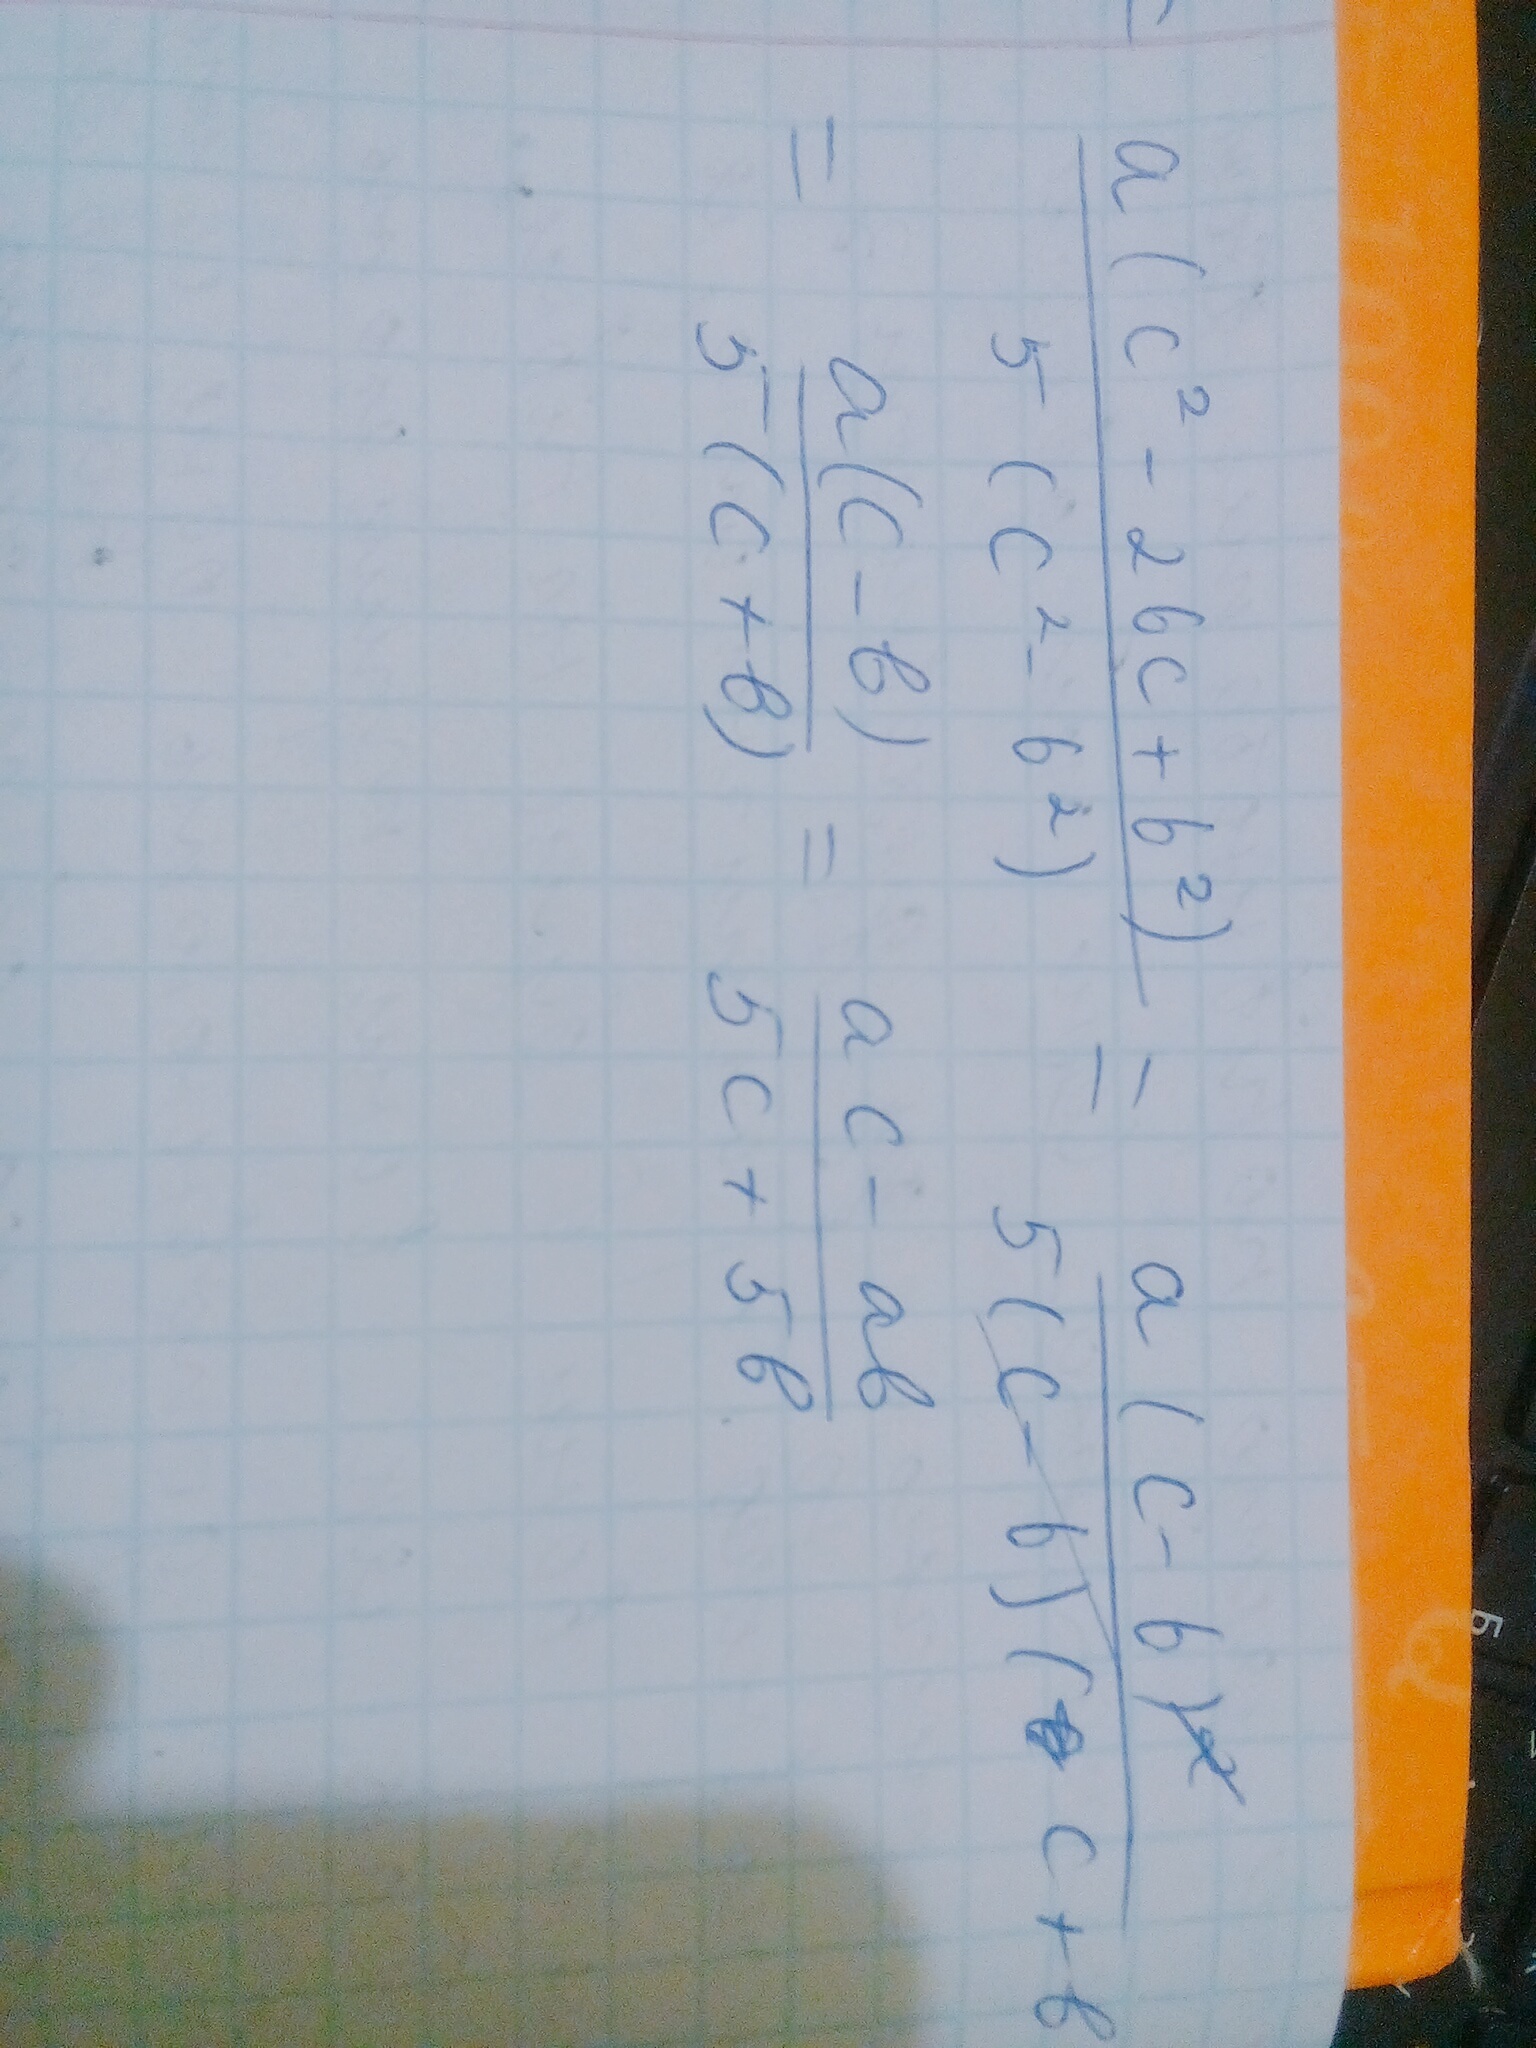 a(c² - 2bc + b²) / 5(c² - b²) = a(c - b)² / 5(c - b)(c + b
= a(c - b) / 5(c + b) = ac - ab / 5c + 5b
Б